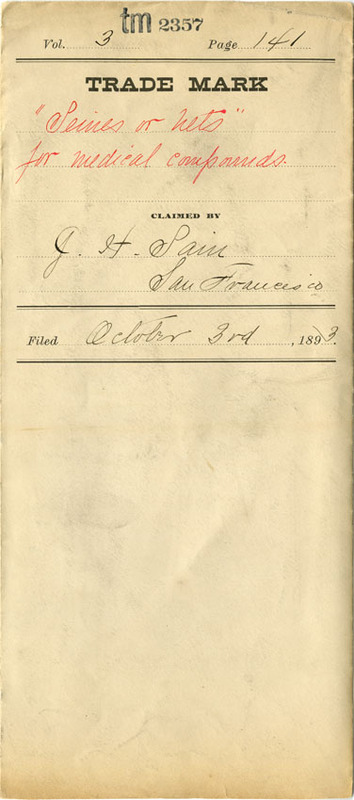 tm 2357
Vol. 3 Page 141
TRADE MARK
"Seines or nets"
for medical compounds.
CLAIMED BY
J. H. Sain
San Francisco
Filed October 3rd, 1893.